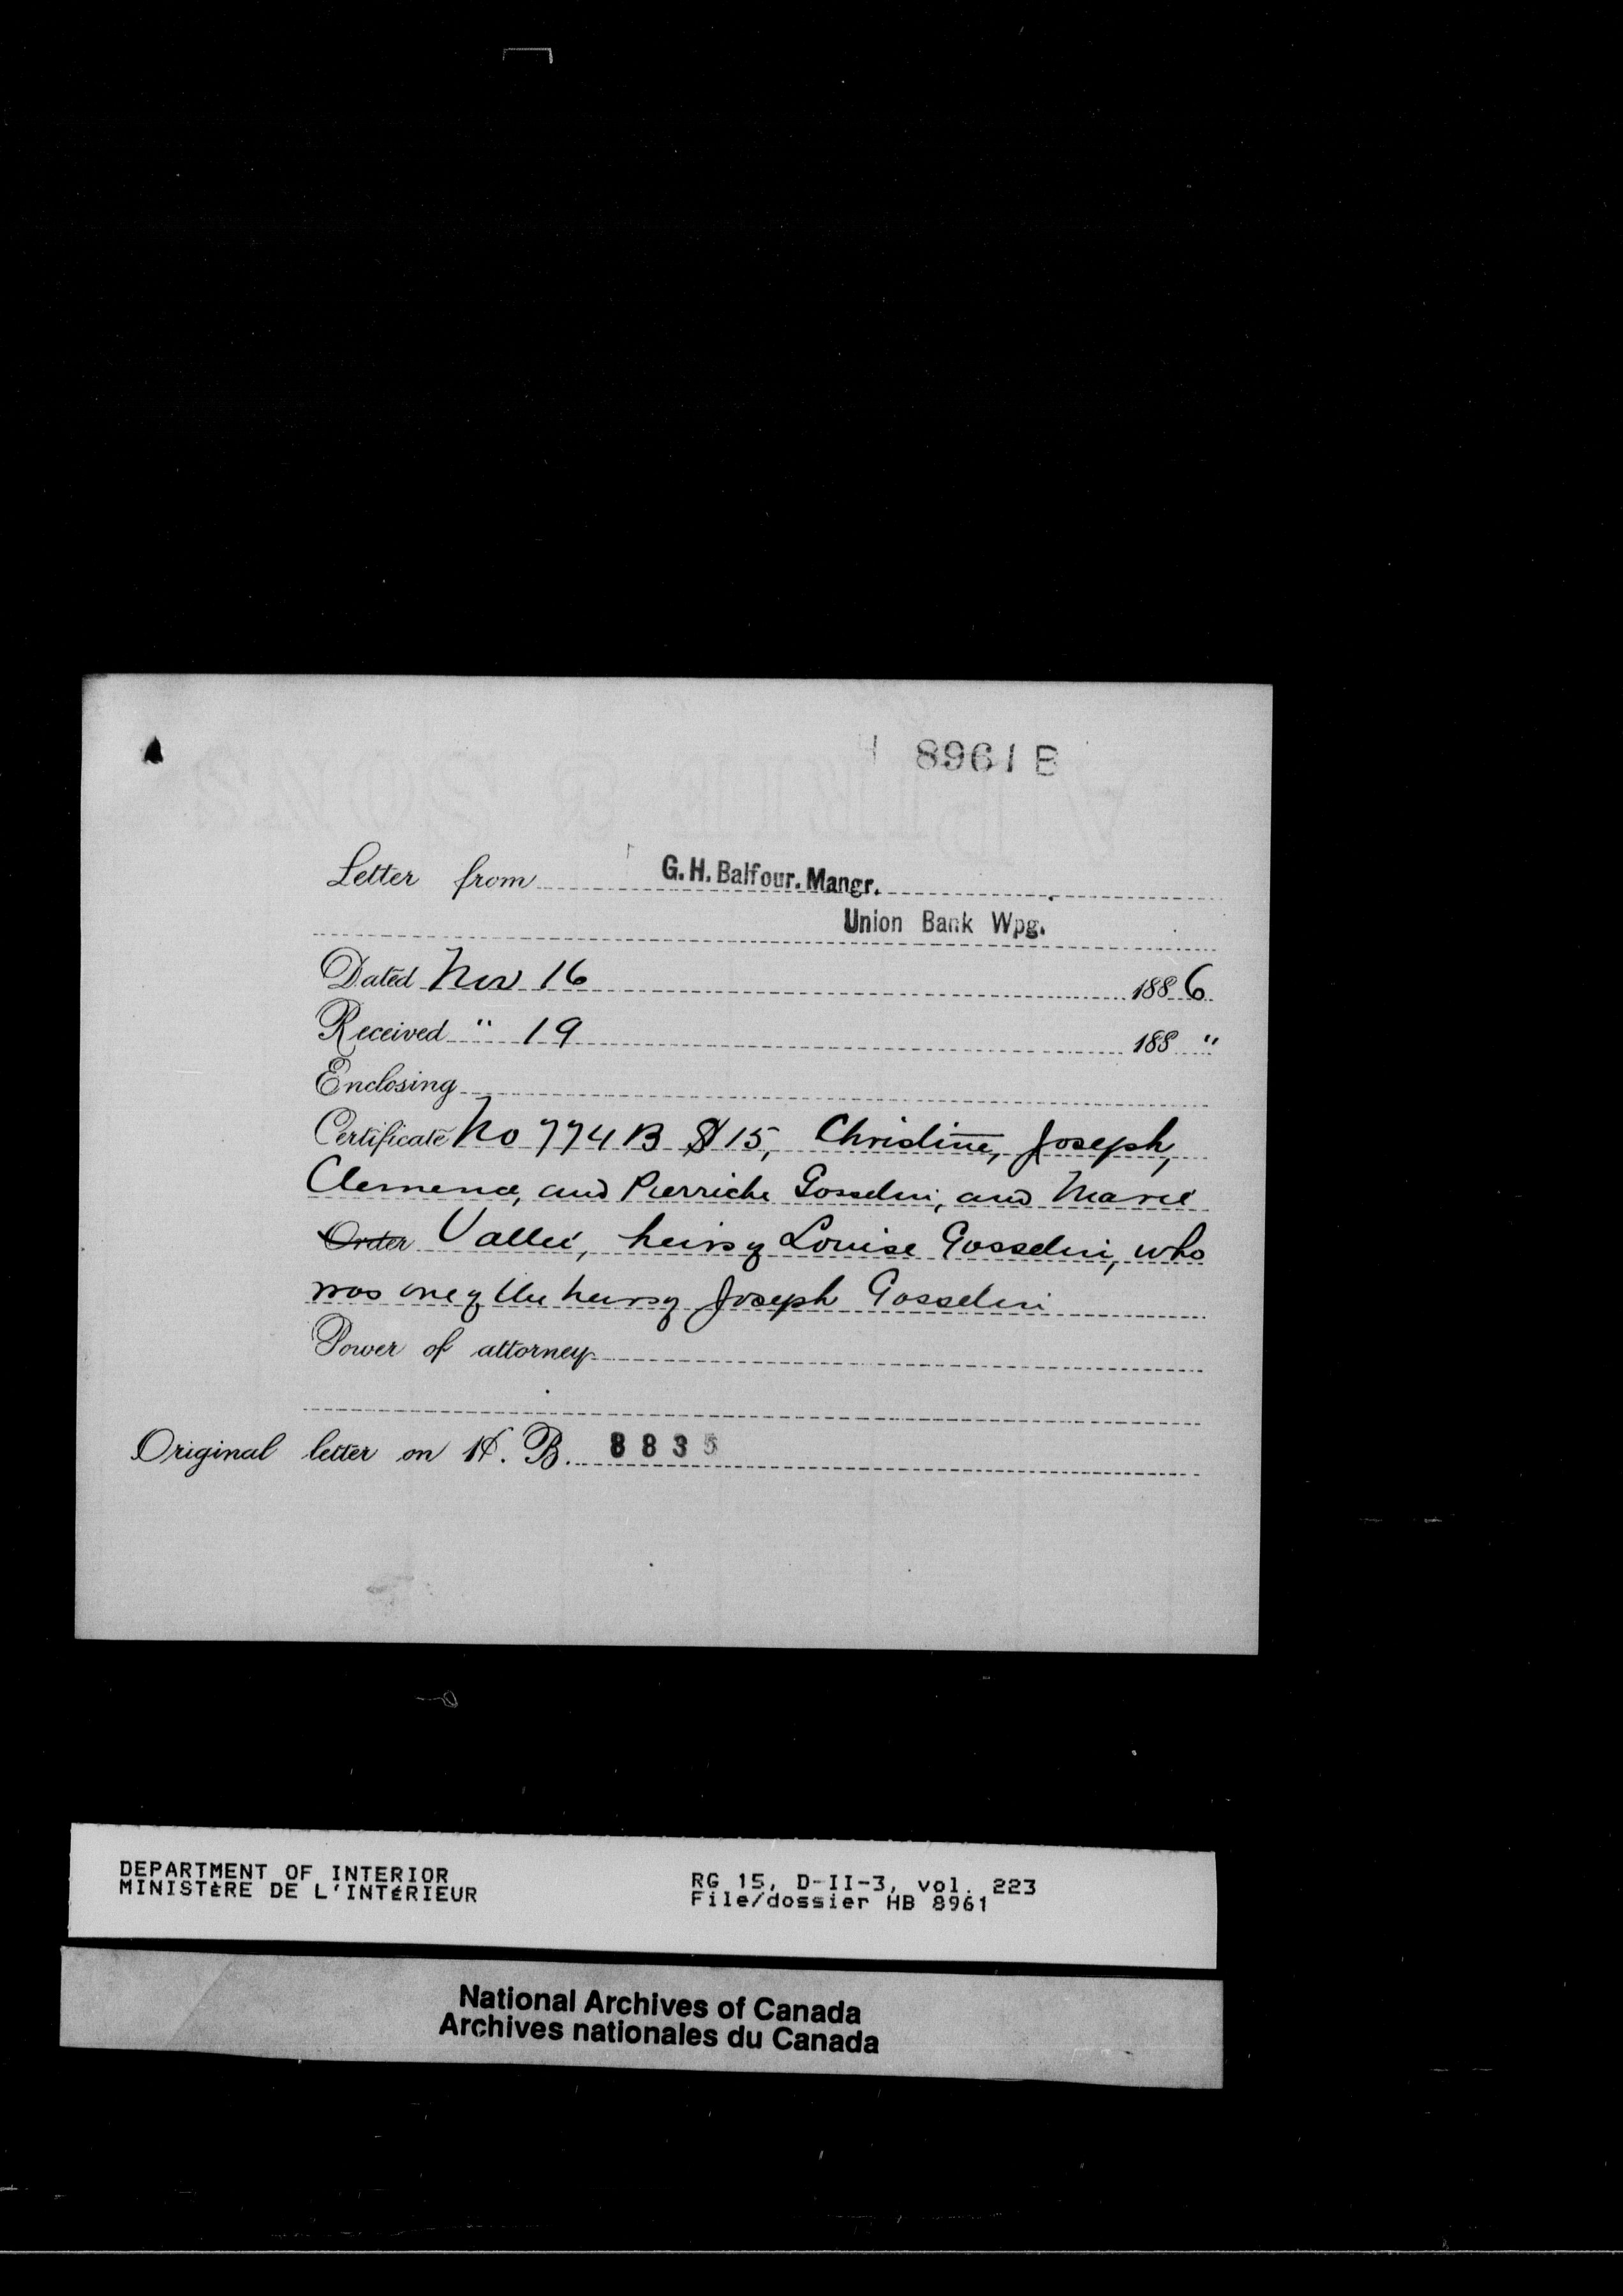 H 8961 B
Letter from G. H. Balfour. Mangr.
Union Bank Wpg.
Dated Nov 16 1886
Received " 19 188 "
Enclosing
Certificate No 774 B $15, Christine, Joseph,
Clemence, and Pierriche Gosselin, and Marie
Order Vallée, heirs of Louise Gosselin, who
was one of the heirs of Joseph Gosselin
Power of attorney
Original letter on H. B. 8835
DEPARTMENT OF INTERIOR
MINISTÈRE DE L'INTÉRIEUR
RG 15, D-II-3, vol. 223
File/dossier HB 8961
National Archives of Canada
Archives nationales du Canada